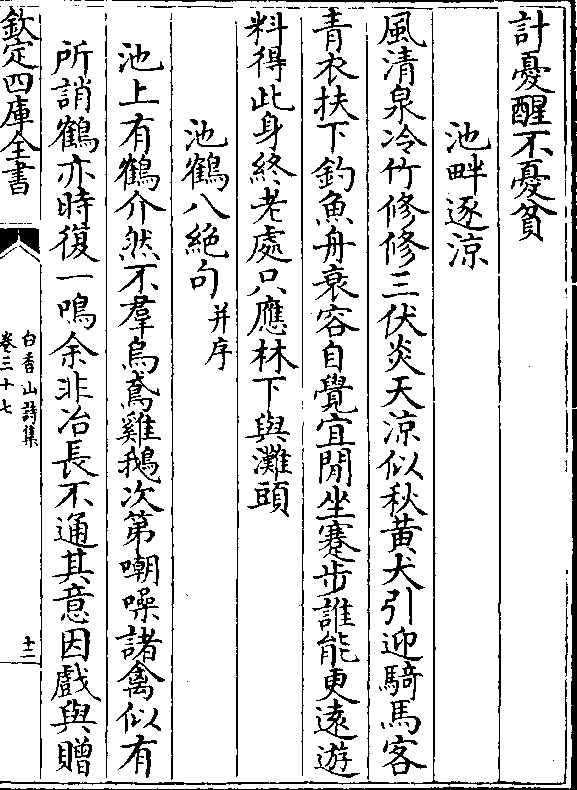 計憂醒不憂貧
池畔逐涼
風清泉冷竹修修三伏炎天涼似秋黄犬引迎騎馬客
青衣扶下釣魚舟衰容自覺宜閒坐蹇步誰能更逺遊
料得此身終老處只應林下與灘頭
池鶴八絶句并序
池上有鶴介然不羣烏鳶雞鵝次第嘲噪諸禽似有
所誚鶴亦時復一鳴余非冶長不通其意因戲與贈
欽定四庫全書
白香山詩集
卷三十七
十二